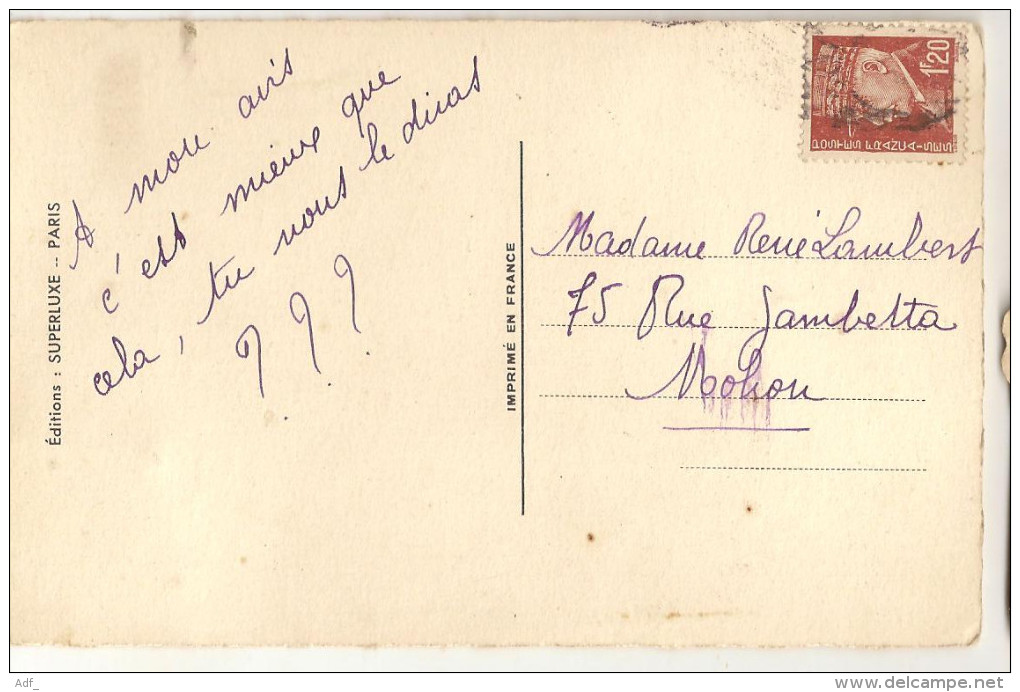 A mon avis
c'est mieux que
cela, tu nous le diras
? ? ?
Éditions : SUPERLUXE -- PARIS
IMPRIMÉ EN FRANCE
1F20
POSTES FRANÇAISES
Madame René Lambert
75 Rue Gambetta
Mohon
Adf_
http://www.delcampe.net